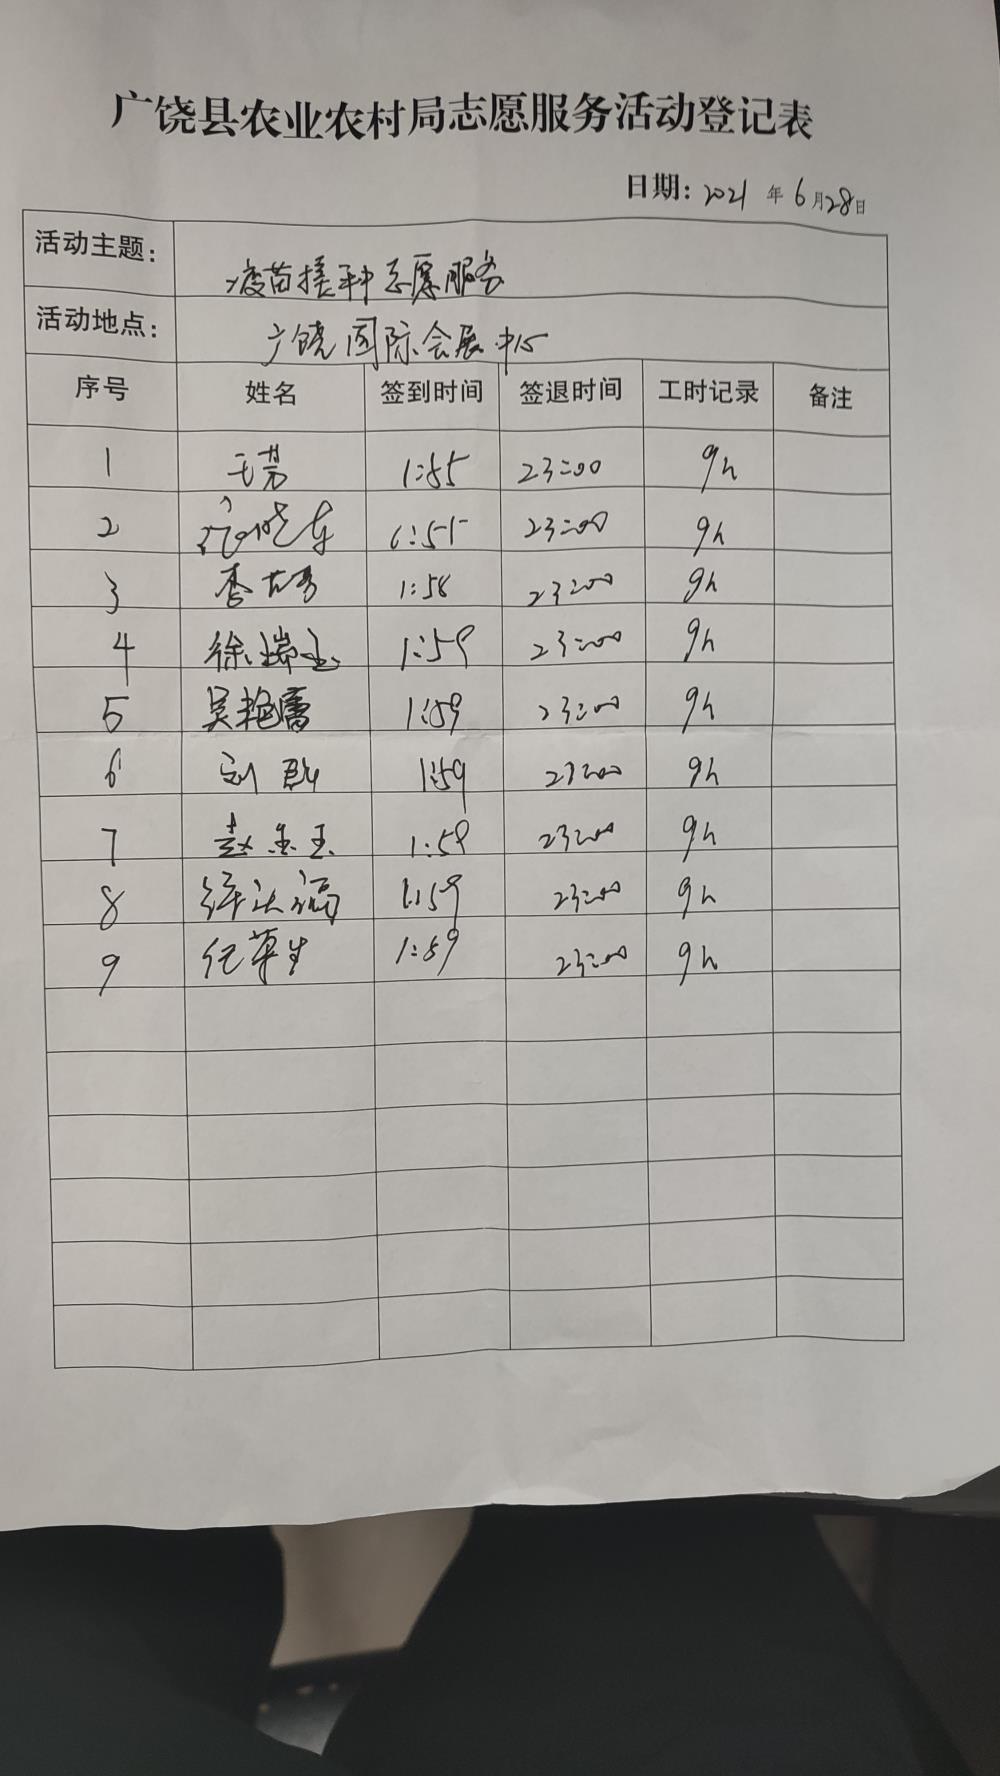 广饶县农业农村局志愿服务活动登记表
日期: 2021 年 6 月 28 日
活动主题: 疫苗接种志愿服务
活动地点: 广饶国际会展中心
序号 姓名 签到时间 签退时间 工时记录 备注
1 王芳 1:55 23:00 9h
2 晓东 1:55 23:00 9h
3 李 1:58 23:00 9h
4 徐瑞玉 1:59 23:00 9h
5 吴艳蕾 1:59 23:00 9h
6 刘 1:59 23:00 9h
7 赵金玉 1:59 23:00 9h
8 1:59 23:00 9h
9 纪华生 1:59 23:00 9h